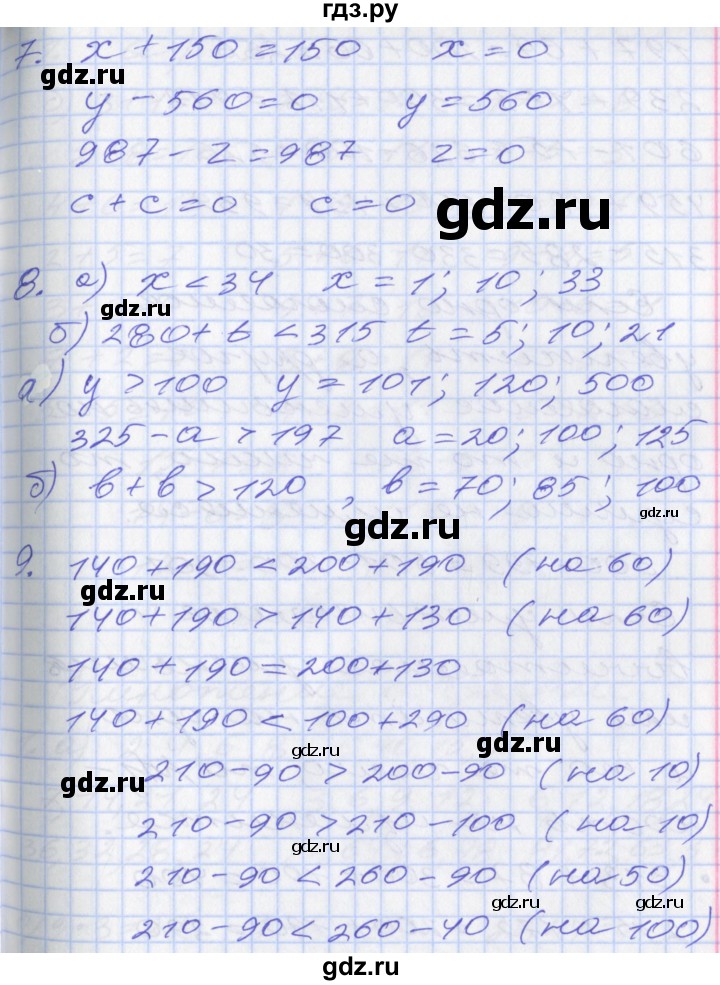 гдз.ру
7. x + 150 = 150 x = 0
gdz.ru
y - 560 = 0 y = 560
987 - z = 987 z = 0
c + c = 0 c = 0
gdz.ru
8. а) x < 34 x = 1; 10; 33
gdz.ru
б) 280 + t < 315 t = 5; 10; 21
а) y > 100 y = 101; 120; 500
325 - a > 197 a = 20; 100; 125
б) b + b > 120, b = 70; 85; 100
gdz.ru
9. 140 + 190 < 200 + 190 (на 60)
gdz.ru
140 + 190 > 140 + 130 (на 60)
140 + 190 = 200 + 130
140 + 190 < 100 + 290 (на 60)
gdz.ru
gdz.ru
210 - 90 > 200 - 90 (на 10)
gdz.ru
210 - 90 > 210 - 100 (на 10)
gdz.ru
210 - 90 < 260 - 90 (на 50)
gdz.ru
210 - 90 < 260 - 40 (на 100)
gdz.ru
gdz.ru